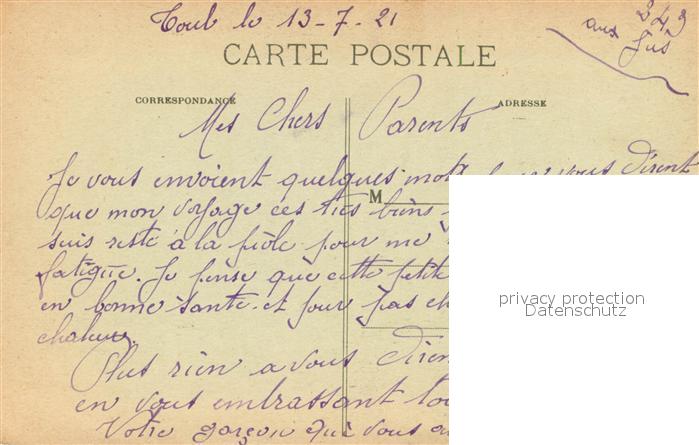 Toul le 13-7-21
343
aux Jus
CARTE POSTALE
CORRESPONDANCE
ADRESSE
Mes Chers Parents
Je vous envoient quelques mots vous dirent
que mon voyage ces tres biens
M
suis resté a la pour me
fatiguée. Je pense que cette petite
en bonne sante et pour pas
chaleur.
Plus rien a vous diren
en vous embrassant
Votre garçon qui vous
privacy protection
Datenschutz